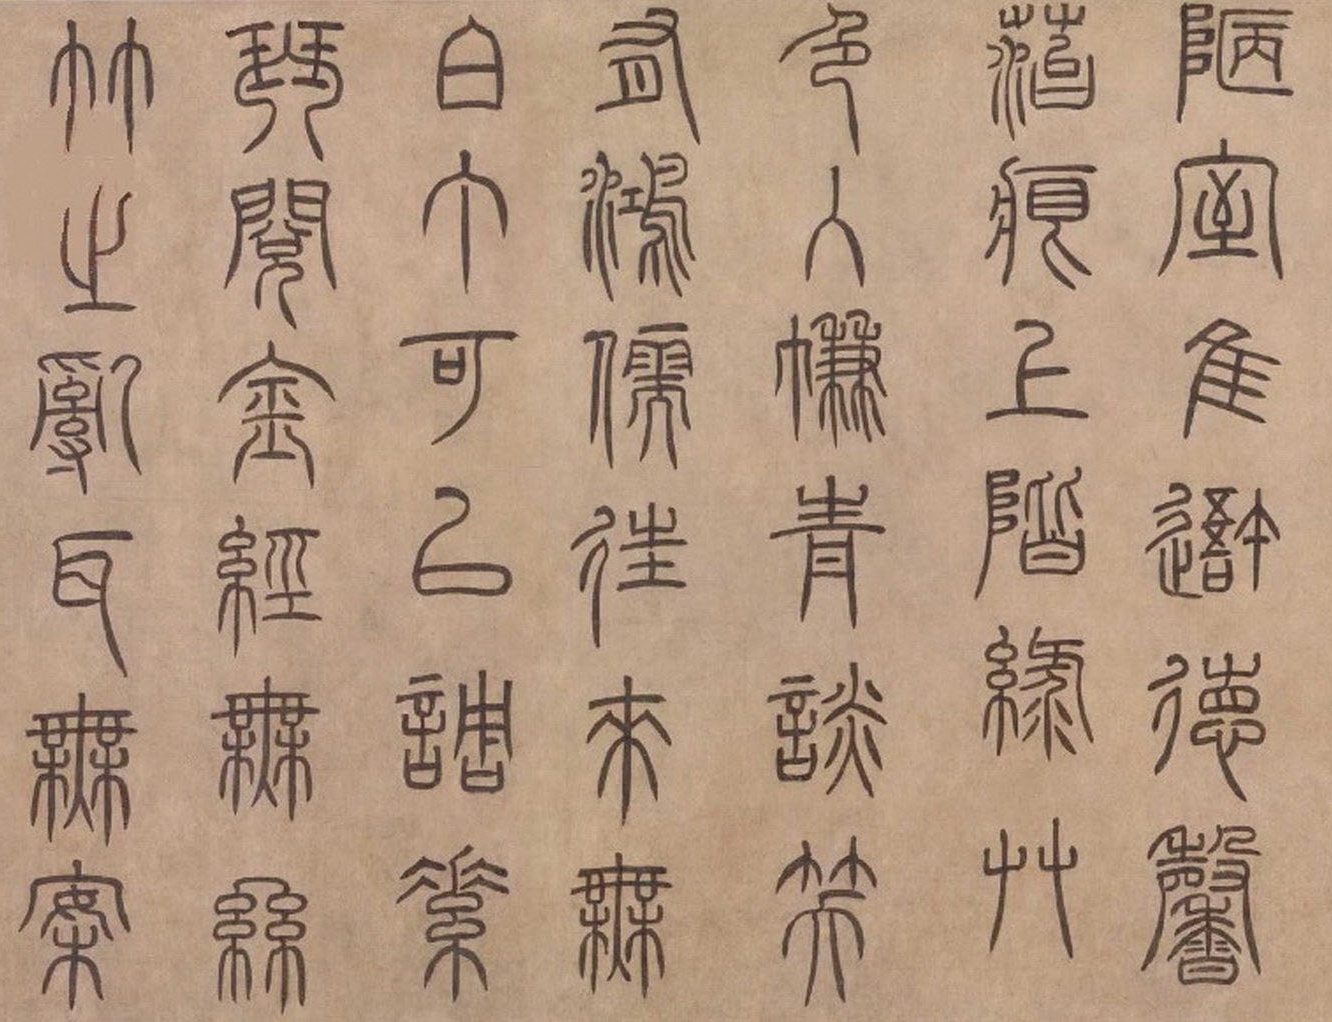 陋室惟吾德馨
苔痕上階綠草
色入簾青談笑
有鴻儒往來無
白丁可以調素
琴閱金經無絲
竹之亂耳無案